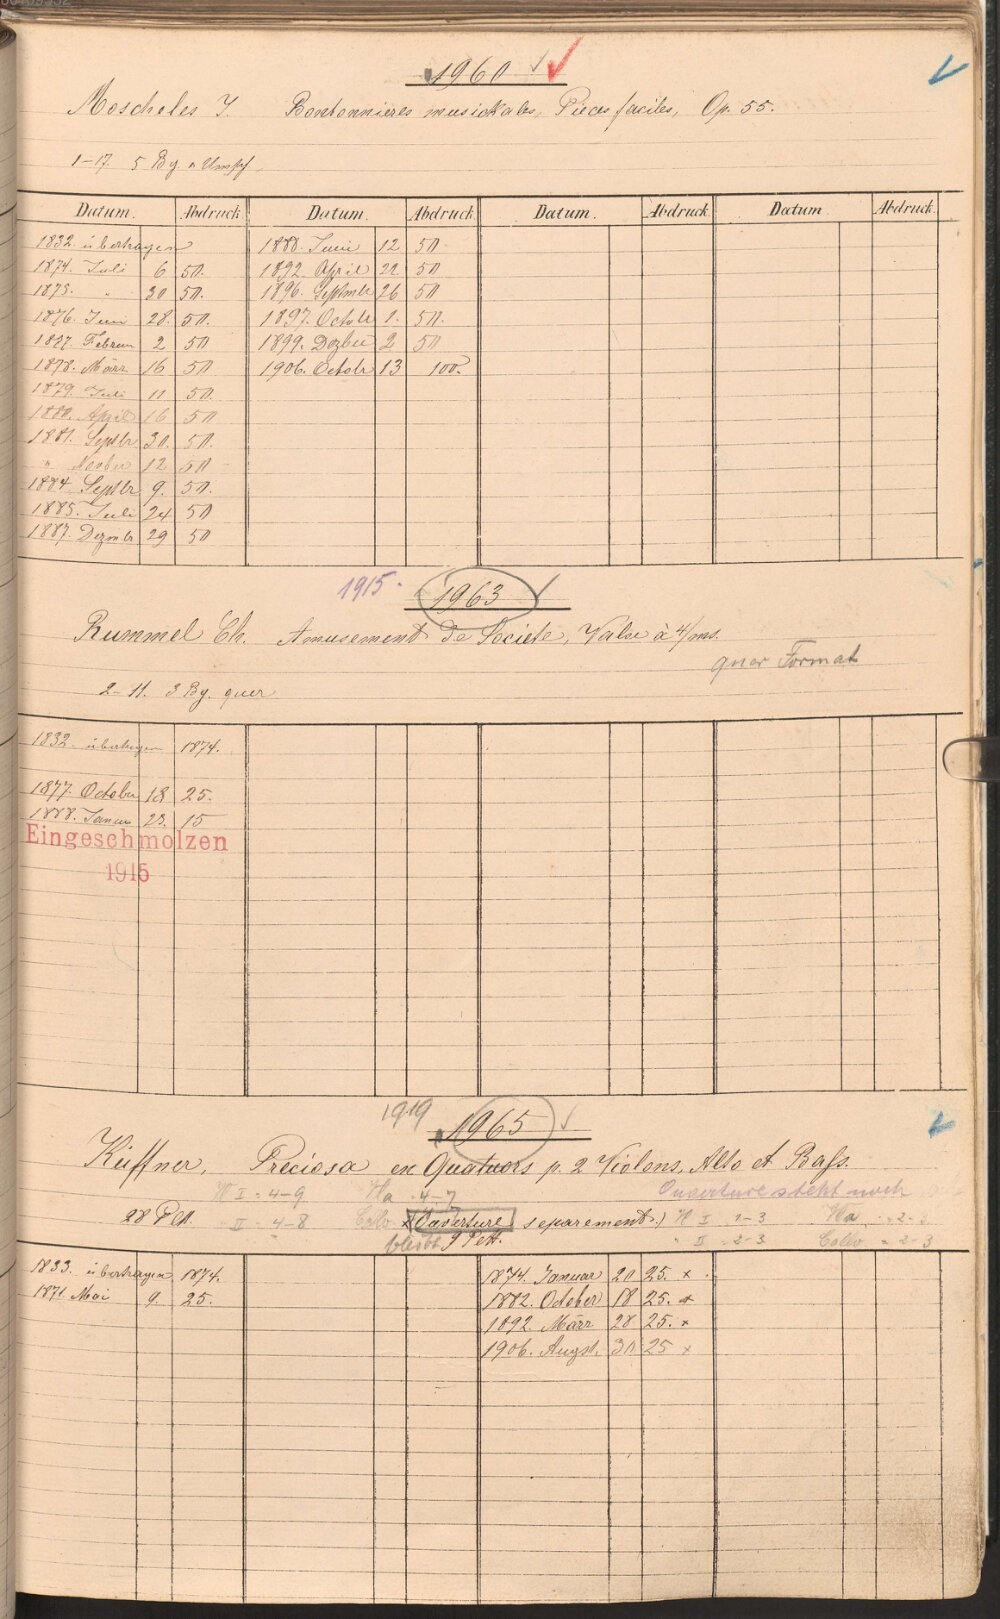 1960
Moscheles I. Bonbonnieres musickales, Pieces faciles, Op. 55.
1-17. 5 Bg. u Umschl.
Datum. Abdruck. Datum. Abdruck. Datum. Abdruck. Datum Abdruck.
1832. übertragen 1888. Juni 12 50
1874. Juli 6 50. 1892 April 22 50
1875. " 30 50. 1896. Septmbr 26 50
1876. Juni 28. 50. 1897. Octobr 1. 50.
1877. Februar 2 50 1899. Dezber 2 50
1878. März 16 50 1906. Octobr 13 100.
1879. Juli 11 50.
1880. April 16 50
1881. Septbr 30. 50.
" Novber 12 50
1884 Septbr 9. 50.
1885. Juli 24 50
1887. Dezmbr 29 50
1915. 1963
Rummel Ch. Amusement de Societe, Valse à 4/ms.
quer Format
2-11. 3 Bg. quer
1832. übertragen 1874.
1877. October 18 25.
1888. Januar 23. 15
Eingeschmolzen
1915
1919 1965
Küffner, Preciosa en Quatuors p. 2 Violons, Alto et Bass.
V I = 4-9 Va = 4-7 Ouverture steht noch
28 Pltt. II = 4-8 Cello 4-7 x (Ouverture separement.) V I = 1-3 Va = 2-3
bleibt 9 Pltt. " II = 2-3 Cello = 2-3
1833. übertragen 1874. 1874. Januar 20 25. x
1871 Mai 9. 25. 1882. October 18 25. x
1892 März 28 25. x
1906. Augst. 30 25 x